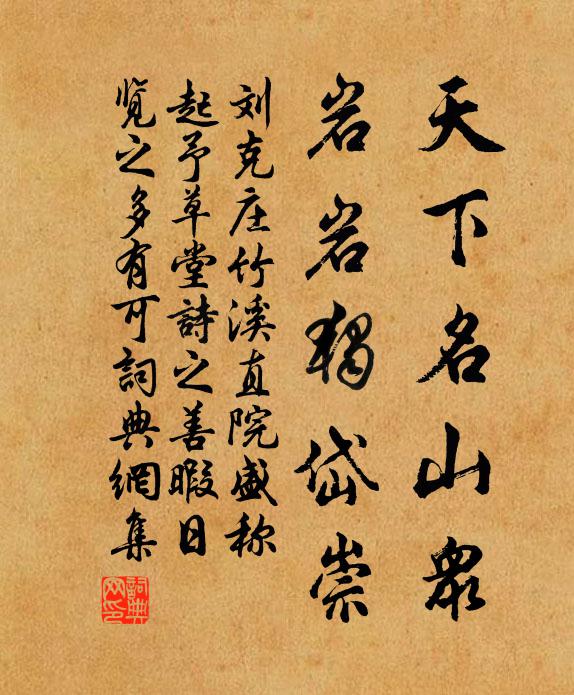 天下名山衆
岩岩獨岱崇
刘克庄竹溪直院盛称
起予草堂詩之善暇日
覽之多有可詞典網集
詞典網印